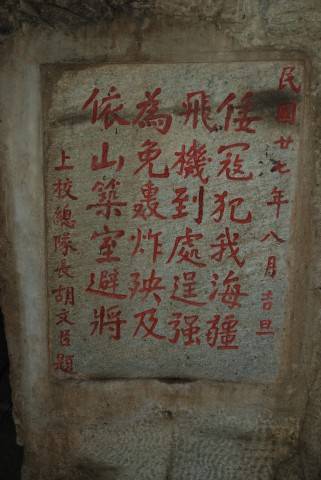 民國廿七年八月吉旦
倭寇犯我海疆
飛機到處逞强
為免轟炸殃及
依山築室避將
上校總隊長胡文㠯題